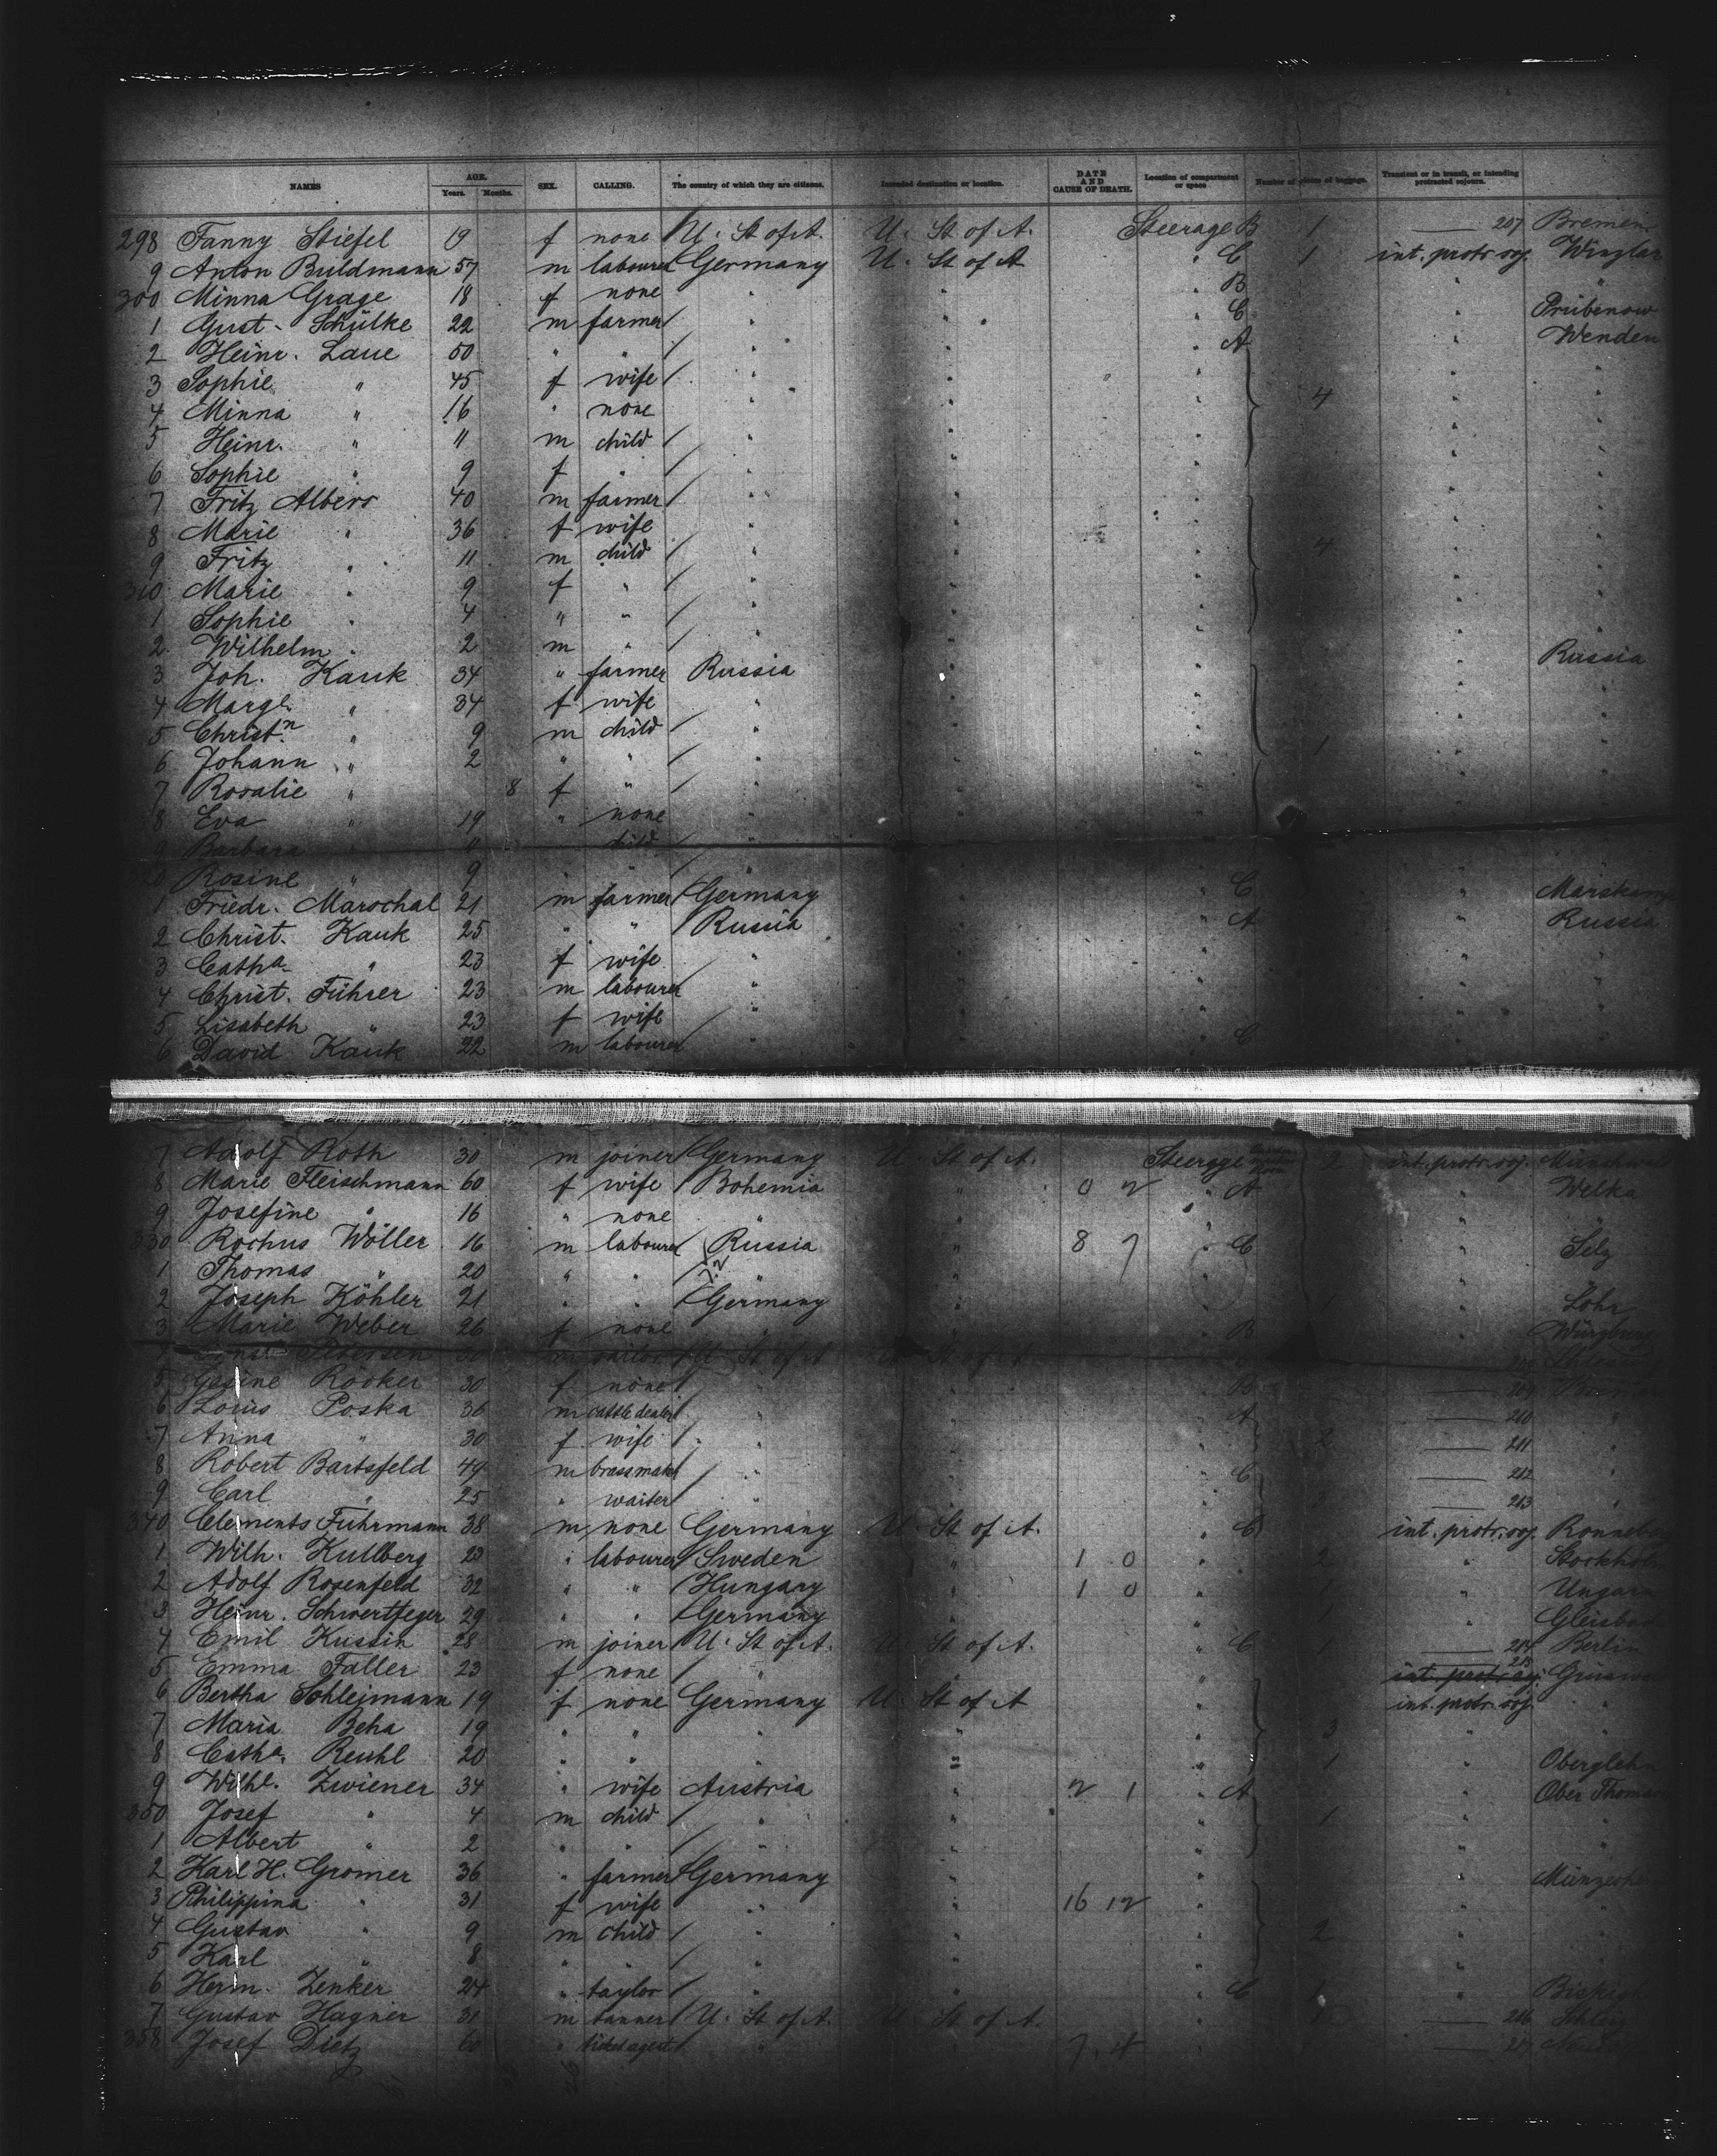 NAMES AGE. Years. Months. SEX. CALLING. The country of which they are citizens. Intended destination or location. DATE AND CAUSE OF DEATH. Location of compartment or space Number of pieces of baggage. Transient or in transit, or intending protracted sojourn.
298 Fanny Stiefel 19 f none U. St of A. U. St of A. Steerage B 1 — 207 Bremen
9 Anton Buldmann 57 m labourer Germany U. St of A " C 1 int. protr. soj. Winzlar
300 Minna Grage 18 f none " " " B " "
1 Gust. Schülke 22 m farmer " " " C " Pribenow
2 Heinr. Laue 50 " " " " " A " Wenden
3 Sophie " 45 f wife " " " " "
4 Minna " 16 " none " " " 4 " "
5 Heinr. " 11 m child " " " " "
6 Sophie " 9 f " " " " " "
7 Fritz Albers 40 m farmer " " " " "
8 Marie " 36 f wife " " " " "
9 Fritz " 11 m child " " " 4 " "
310 Marie " 9 f " " " " " "
1 Sophie " 4 " " " " " " "
2 Wilhelm " 2 m " " " " " "
3 Joh. Kauk 34 " farmer Russia " " " Russia
4 Margt. " 34 f wife " " " " "
5 Christn. " 9 m child " " " " "
6 Johann " 2 " " " " " 1 " "
7 Rosalie " 8 f " " " " " "
8 Eva " 19 " none " " " " "
9 Barbara " child " " " " "
320 Rosine " 9 " " " " " " "
1 Friedr. Marochal 21 m farmer Germany " " C " Marskamp
2 Christ. Kauk 25 " " Russia " " A " Russia
3 Catha. " 23 f wife " " " " "
4 Christ. Führer 23 m labourer " " " " "
5 Lisabeth " 23 f wife " " " " "
6 David Kauk 22 m labourer " " " C " "
7 Adolf Roth 30 m joiner Germany U St of A. Steerage 2 int. protr. soj.
8 Marie Fleischmann 60 f wife Bohemia " 0 2 " A " Welka
9 Josefine " 16 " none " " " " "
330 Rochus Wöller 16 m labourer Russia " 8 7 " C " Selz
1 Thomas " 20 " " " " " " "
2 Joseph Köhler 21 " " Germany " " " Lohr
3 Marie Weber 26 f none " " " B " Würzburg
m U. St of A U St of A
5 Gesine Rooker 30 f none " " " B — 209
6 Louis Poska 36 m cattle dealer " " " A — 210 "
7 Anna " 30 f wife " " " — 211 "
8 Robert Bartsfeld 49 m brassmaker " " " C — 212 "
9 Carl " 25 " waiter " " " — 213 "
340 Clements Fuhrmann 38 m none Germany U. St of A. " C int. protr. soj.
1 Wilh. Kullberg 23 " labourer Sweden " 1 0 " 2 " Stockholm
2 Adolf Rosenfeld 32 " " Hungary " 1 0 " 1 " Ungarn
3 Heinr. Schwertfeger 29 " " Germany " " 1 "
4 Emil Kussin 28 m joiner U. St of A. U St of A. " C 1 — 214 Berlin
5 Emma Faller 23 f none " " " 215 int. protr. soj.
6 Bertha Schleimann 19 f none Germany U. St of A " int. protr. soj. "
7 Maria Beha 19 " " " " " 3 " "
8 Catha. Reuhl 20 " " " " " 1 "
9 Wilhe. Zwiener 34 " wife Austria " 2 1 " A "
350 Josef " 4 m child " " " 1 " "
1 Albert " 2 " " " " " " "
2 Karl H. Gromer 36 " farmer Germany " " "
3 Philippina " 31 f wife " " 16 12 " " "
4 Gustav " 9 m child " " " 2 " "
5 Karl " 8 " " " " " " "
6 Herm. Zenker 24 " taylor " " " C 1 "
7 Gustav Hagner 31 m tanner U. St of A. U St of A. " — 216
358 Josef Dietz 60 " ticket agent " " 7. 4 " — 217